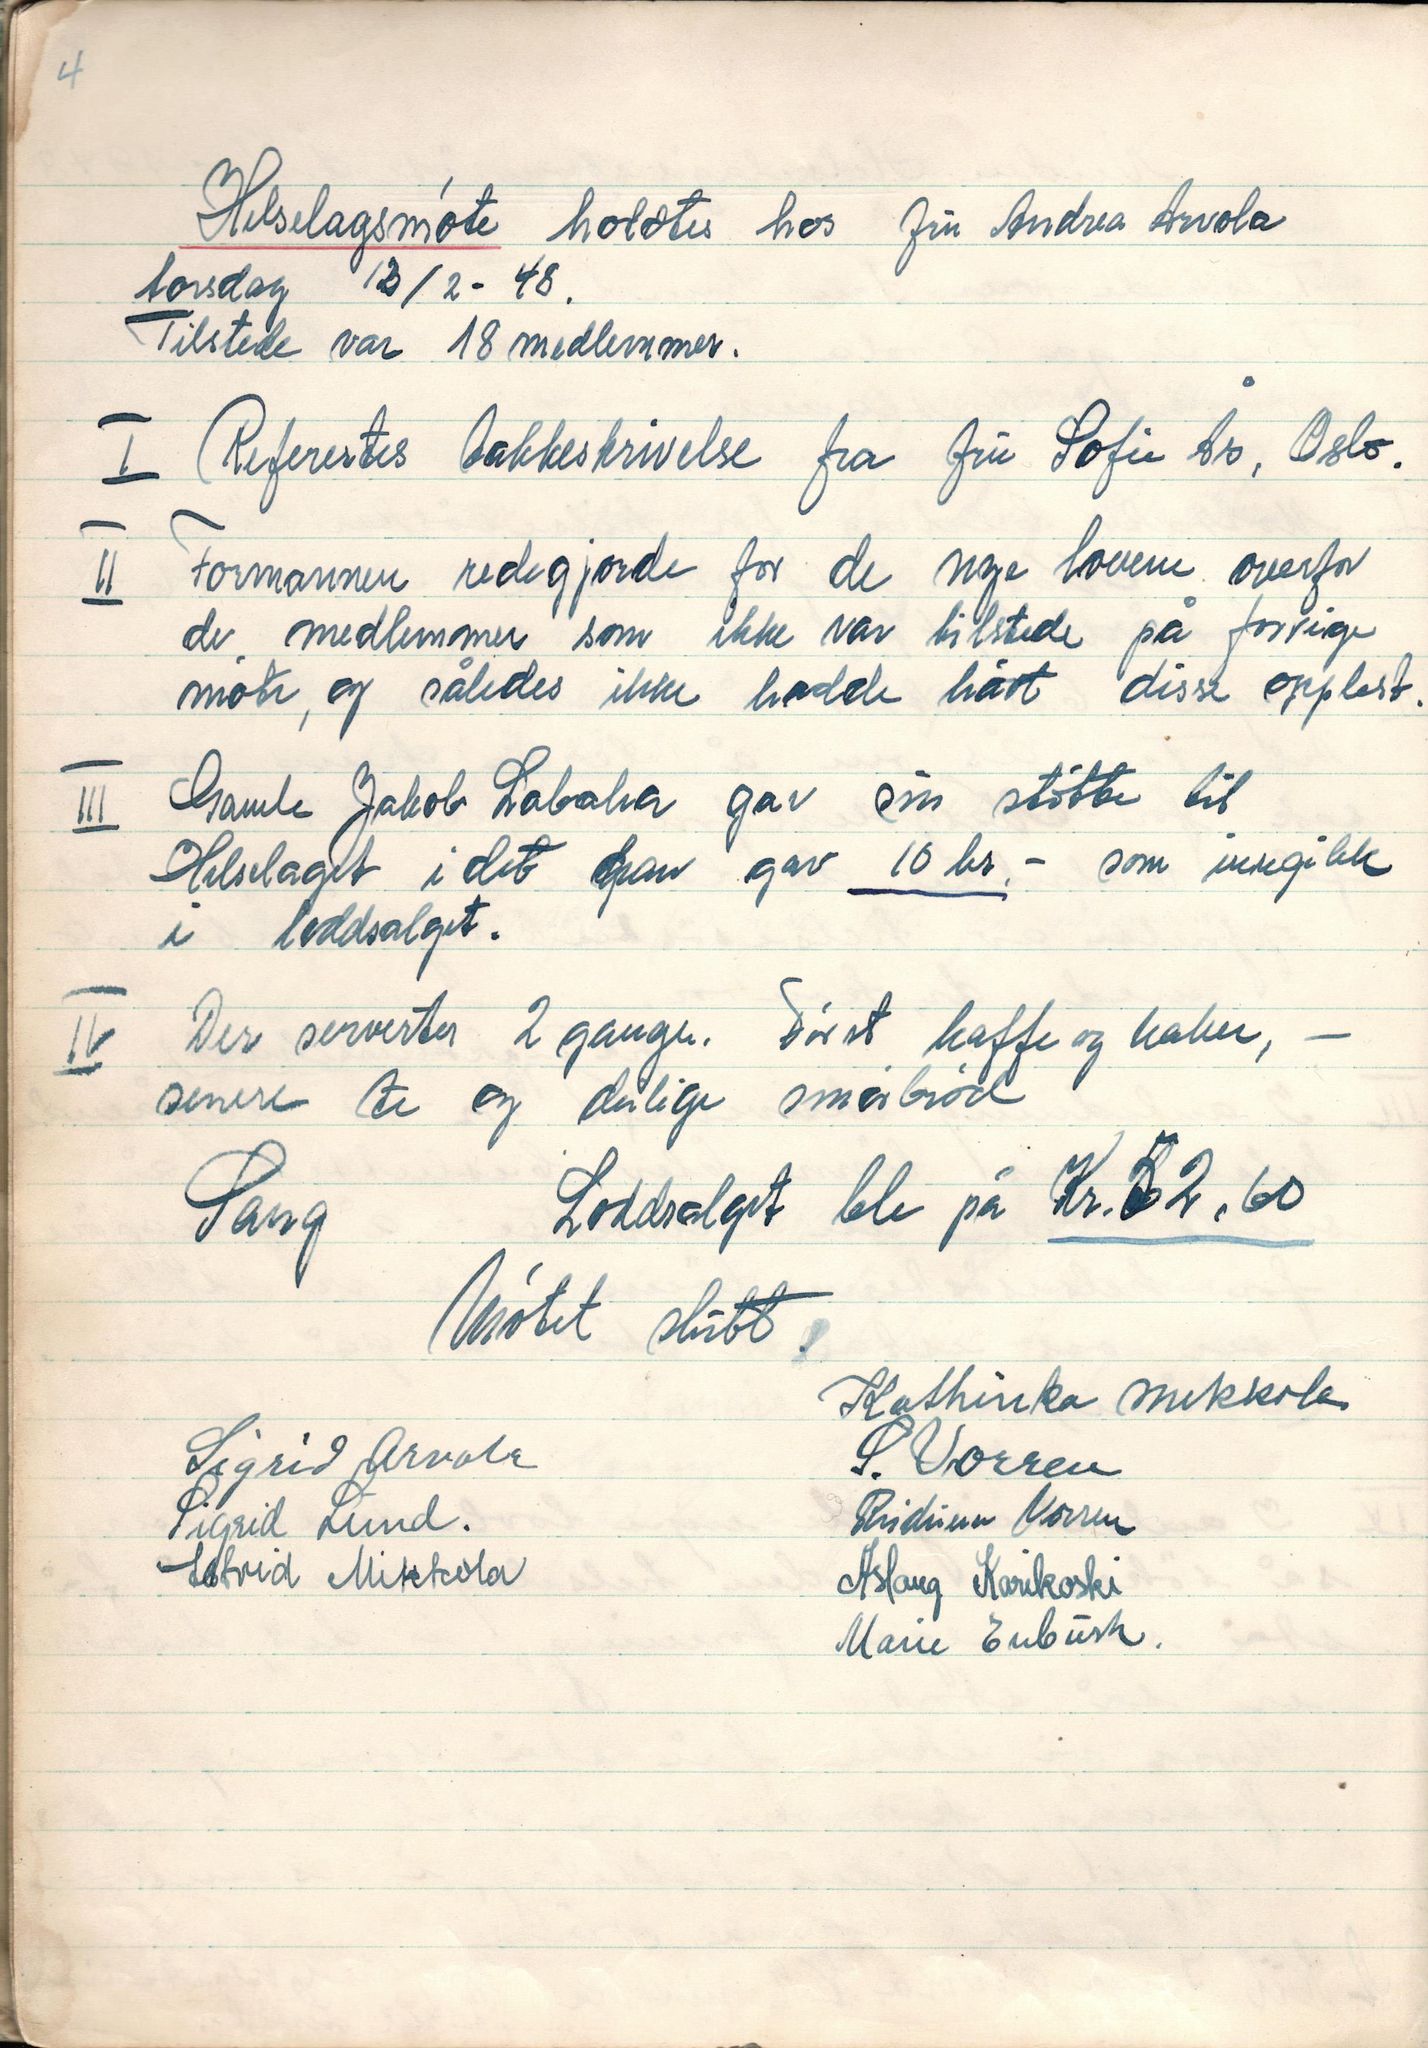 4
Helselagsmöte holdtes hos frü Andrea Arvola
torsdag 12/2-48.
Tilstede var 18 medlemmer.
I Referertes takkeskrivelse fra frü Sofie Ås, Oslo.
II Formannen redegjorde for de nye lovene overfor
de medlemmer som ikke var tilstede på forrige
möte, og således ikke hadde hört disse opplest.
III Gamle Jakob Labaha gav sin stötte til
Helselaget idet han gav 10 kr.- som inngikk
i loddsalget.
IV Der servertes 2 ganger. Först kaffe og kaker, -
senere te og deilige smörbröd
Sang Loddsalget ble på Kr. 52,60
Mötet slütt!
Kathinka Mikkola
Sigrid Arvola S. Vorren
Sigrid Lünd. Vorren
Astrid Mikkola Aslaug Karikoski
Marie Enbüsk.